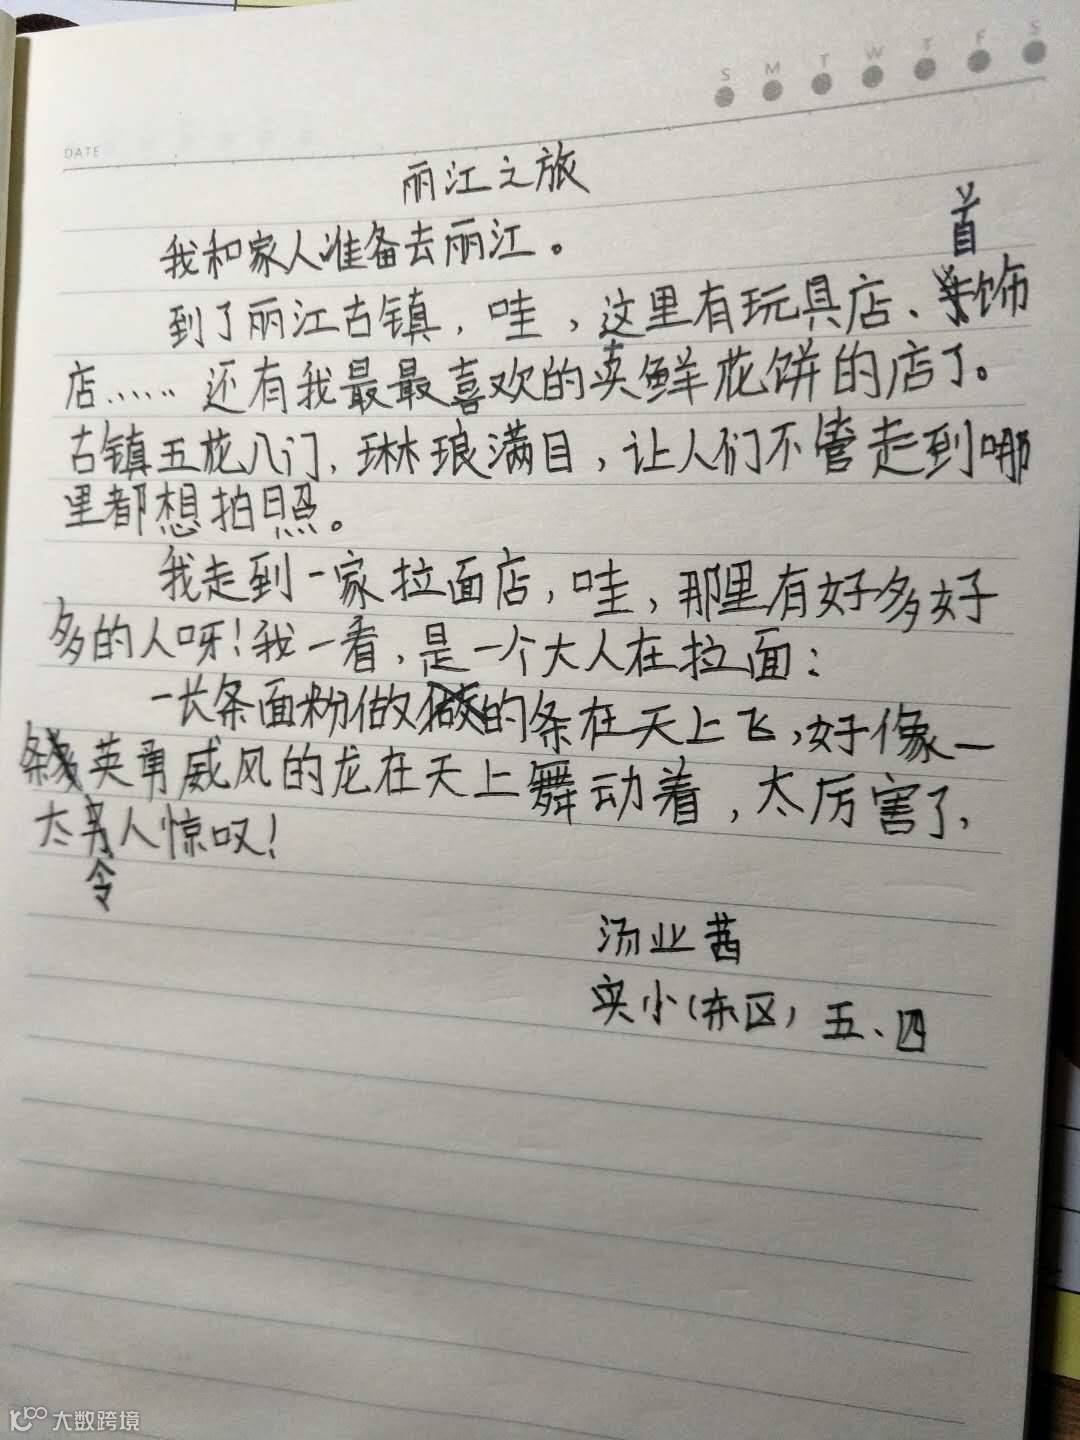 S M T W T F S
DATE
丽江之旅
我和家人准备去丽江。
首
到了丽江古镇，哇，这里有玩具店、饰
店……还有我最最喜欢的卖鲜花饼的店了。
古镇五花八门，琳琅满目，让人们不管走到哪
里都想拍照。
我走到一家拉面店，哇，那里有好多好
多的人呀！我一看，是一个大人在拉面：
一长条面粉做的条在天上飞，好像一
条英勇威风的龙在天上舞动着，太厉害了，
太人惊叹！
令
汤业茜
实小（东区）五、四
大数跨境